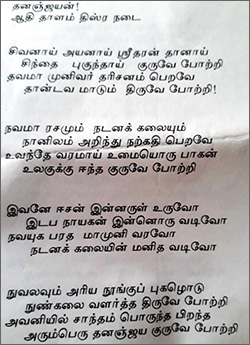 தனஞ்ஜயன்!
ஆதி தாளம் திஸ்ர நடை
சிவனாய் அயனாய் ஸ்ரீதரன் தானாய்
சிந்தை புகுந்தாய் குருவே போற்றி
தவமா முனிவர் தரிசனம் பெறவே
தான்டவ மாடும் திருவே போற்றி!
நவமா ரசமும் நடனக் கலையும்
நானிலம் அறிந்து நற்கதி பெறவே
உவந்தே வரமாய் உமையொரு பாகன்
உலகுக்கு ஈந்த குருவே போற்றி
இவனே ஈசன் இன்னருள் உருவோ
இடப நாயகன் இன்னொரு வடிவோ
நவயுக பரத மாமுனி வரவோ
நடனக் கலையின் மனித வடிவோ
நுவலவும் அரிய நூங்குப் புகழொடு
நுண்கலை வளர்த்த திருவே போற்றி
அவனியில் சாந்தம் பொருந்த பிறந்த
அரும்பெரு தனஞ்ஜய குருவே போற்றி